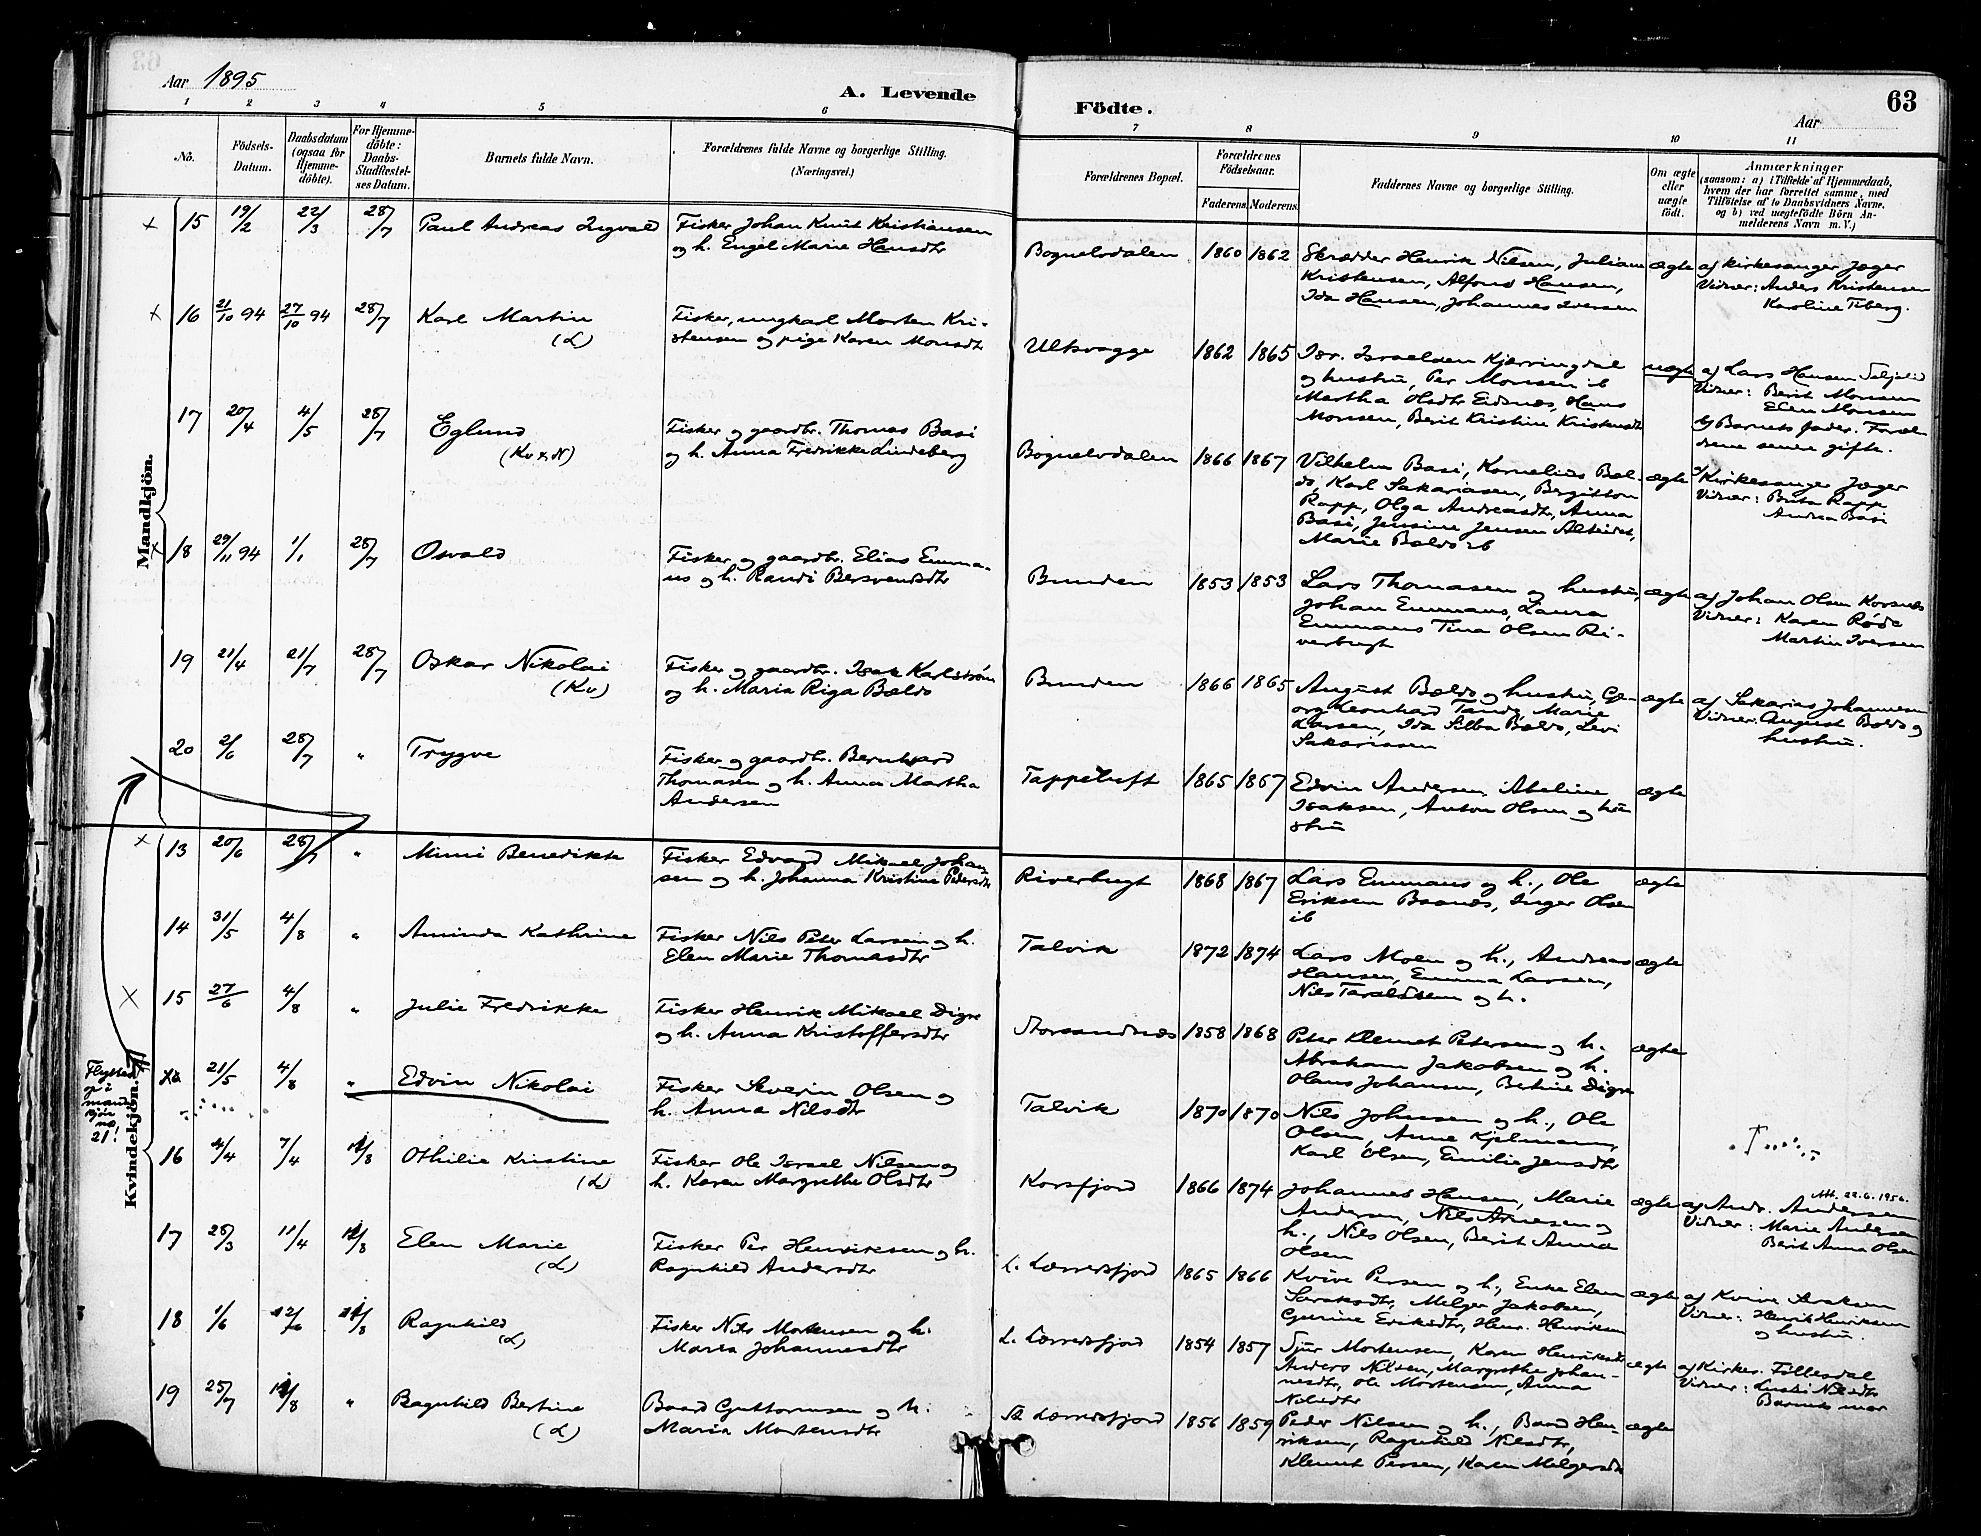 Aar 1895
A. Levende
Födte.
Aar
63
1 2 3 4 5 6 7 8 9 10 11
No.
Födsels-
Datum.
Daabsdatum
(ogsaa for
Hjemme-
döbte).
For Hjemme-
döbte:
Daabs-
Stadfæstel-
ses Datum.
Barnets fulde Navn.
Forældrenes fulde Navne og borgerlige Stilling.
(Næringsvei.)
Forældrenes Bopæl.
Forældrenes
Födselsaar.
Faderens. Moderens.
Faddernes Navne og borgerlige Stilling.
Om ægte
eller
uægte
födt.
Anmærkninger
(saasom: a) i Tilfælde af Hjemmedaab,
hvem der har forrettet samme, med
Tilföielse af to Daabsvidners Navne,
og b) ved uægtefödte Börn An-
melderens Navn m. V.)
Mandkjön.
15 19/2 22/3 28/7 Paul Andreas Ingvald
Fisker Johan Knut Kristiansen
og h. Engel Marie Hansdtr
Bognelvdalen 1860 1862
Skrædder Henrik Nilsen, Juliane
Kristensen, Alfons Hansen,
Ida Hansen, Johannes Iversen
ægte
af Kirkesanger Jæger
Vidner: Anders Kristensen
Karoline Tiberg.
16 21/10 94 27/10 94 28/7 Karl Martin
(L)
Fisker, ungkarl Morten Kri-
stensen og pige Karen Monsdtr
Ulksvagge 1862 1865
Isr. Israelsen Kjerringdal
og hustru, Per Monsen ib
Martha Olsdtr Eidsnes, Hans
Monsen, Berit Kristine Kristensdtr
uægte
af Lars Hansen
Vidner: Berit Monsen
Elen Monsen
b) Barnets fader. Foræl-
drene senere gifte.
17 20/4 4/5 28/7 Eglund
(Kv + N)
Fisker og gaardbr. Thomas Basi
og h. Anna Fredrikke Lindeberg
Bognelvdalen 1866 1867
Vilhelm Basi, Kornelius Bæl-
ds, Karl Sakariasen, Birgitton
Rapp, Olga Andreasdtr, Anna
Basi, Jensine Jensen Alteidet,
Marie Bælds ib
ægte
af Kirkesanger Jæger
Vidner: Brita Rapp
Andrea Basi
18 29/11 94 1/1 28/7 Osvald
Fisker og gaardbr. Elias Emma-
us og h. Randi Bersvendsdtr
Bunden 1853 1853
Lars Thomasen og hustru,
Johan Emmaus, Laura
Emmaus Tina Olsen Ri-
verbugt
ægte
af Johan Olsen Korsnes
Vidner: Karen Røde
Martin Iversen
19 21/4 21/7 28/7 Oskar Nikolai
(Kv)
Fisker og gaardbr. Isak Karlstrøm
og h. Maria Riga Bælds
Bunden 1866 1865
August Bælds og hustru, Ge-
org Leonhard Tandy Marie
Larsen, Ida Silba Bælds, Levi
Sakariassen
ægte
af Sakarias Johannesen
Vidner: August Bælds og
hustru.
20 2/6 28/7 " Trygve
Fisker og gaardbr. Bernhard
Thomasen og h. Anna Martha
Andersen
Tappeluft 1865 1867
Edvin Andersen, Abeline
Isaksen, Anton Olsen og hu
stru
ægte
Kvindekjön.
13 20/6 28/7 " Mimi Benedikte
Fisker Edvard Mikael Johan
sen og h. Johanna Kristine Pedersdtr
Riverbugt 1868 1867
Lars Emmaus og h., Ole
Eriksen Bsones, Inger Olsen
ib
ægte
14 31/5 4/8 " Aminda Kathrine
Fisker Nils Peter Larsen og h.
Elen Marie Thomasdtr
Talvik 1872 1874
Lars Moen og h., Andreas
Hansen, Emma Larsen,
Nils Taraldsen og h.
ægte
15 27/6 4/8 " Julie Fredrikke
Fisker Henrik Mikael Digre
og h. Anna Kristoffersdtr
Storsandnes 1858 1868
Peter Klemet Petersen og h.
Abraham Jakobsen og h.
Olaus Johansen, Betine Digre
ægte
Flyttes
op i
mand
kjön
no
21!
21/5 4/8 " Edvin Nikolai
Fisker Severin Olsen og
h. Anna Nilsdtr
Talvik 1870 1870
Nils Johnsen og h., Ole
Olsen, Anne Kjelmann,
Karl Olsen, Emilie Jensdtr
16 4/4 7/4 11/8 Othilie Kristine
(L)
Fisker Ole Israel Nilsen og
h. Karen Margrethe Olsdtr
Korsfjord 1866 1874
Johannes Hansen, Marie
Andersen, Nils Arnesen og
h., Nils Olsen, Berit Anna
Olsen
ægte
Att. 22.6.1956.
af Andr. Andersen
Vidner: Marie Andersen
Berit Anna Olsen
17 28/3 11/4 11/8 Elen Marie
(L)
Fisker Per Henriksen og h.
Ragnhild Andersdtr
L. Lerredsfjord 1865 1866
Kvive Persen og h., Enke Elen
Saraksdtr, Melger Jakobsen,
Gurine Eriksdtr, Henr. Henriksen
ægte
af Kvive Araksen
Vidner: Henrik Henriksen
og hustru.
18 1/6 12/6 11/8 Ragnhild
(L)
Fisker Nils Mortensen og h.
Maria Johannesdtr
L. Lerredsfjord 1854 1857
Sjur Mortensen, Karen Henriksdtr
Anders Nilsen, Margrethe Johan-
nesdtr, Ole Mortensen, Anna
Nilsdtr
ægte
af Kirkes. Föllesdal
Vidner: Lusbi Nilsdtr
Barnets mor
19 25/7 11/8 " Ragnhild Bertine
(L)
Baard Guttormsen og h.
Maria Mortensdtr
St. Lerredsfjord 1856 1859
Peder Nilsen og h., Baard Hen-
riksen, Ragnhild Nilsdtr,
Klemet Persen, Karen Melgersdtr
ægte